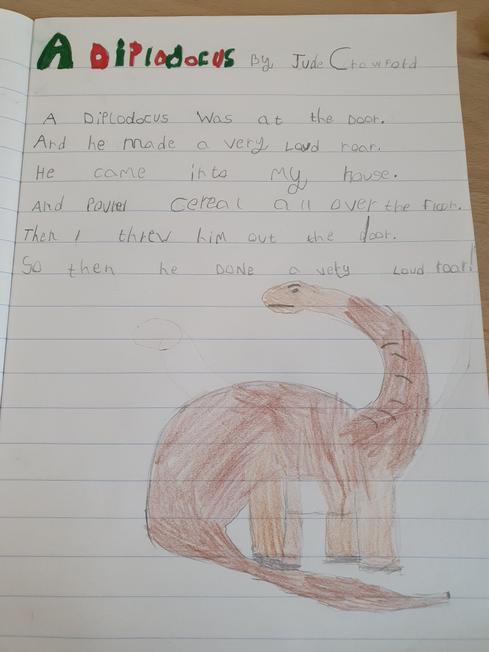 A DiPlodocus By Jude Crawford
A DiPlodocus Was at the Door.
And he made a very Loud roar.
He came into My house.
And Poured cereal all over the Floor.
Then I threw him out the door.
So then he DONE a very Loud roar!